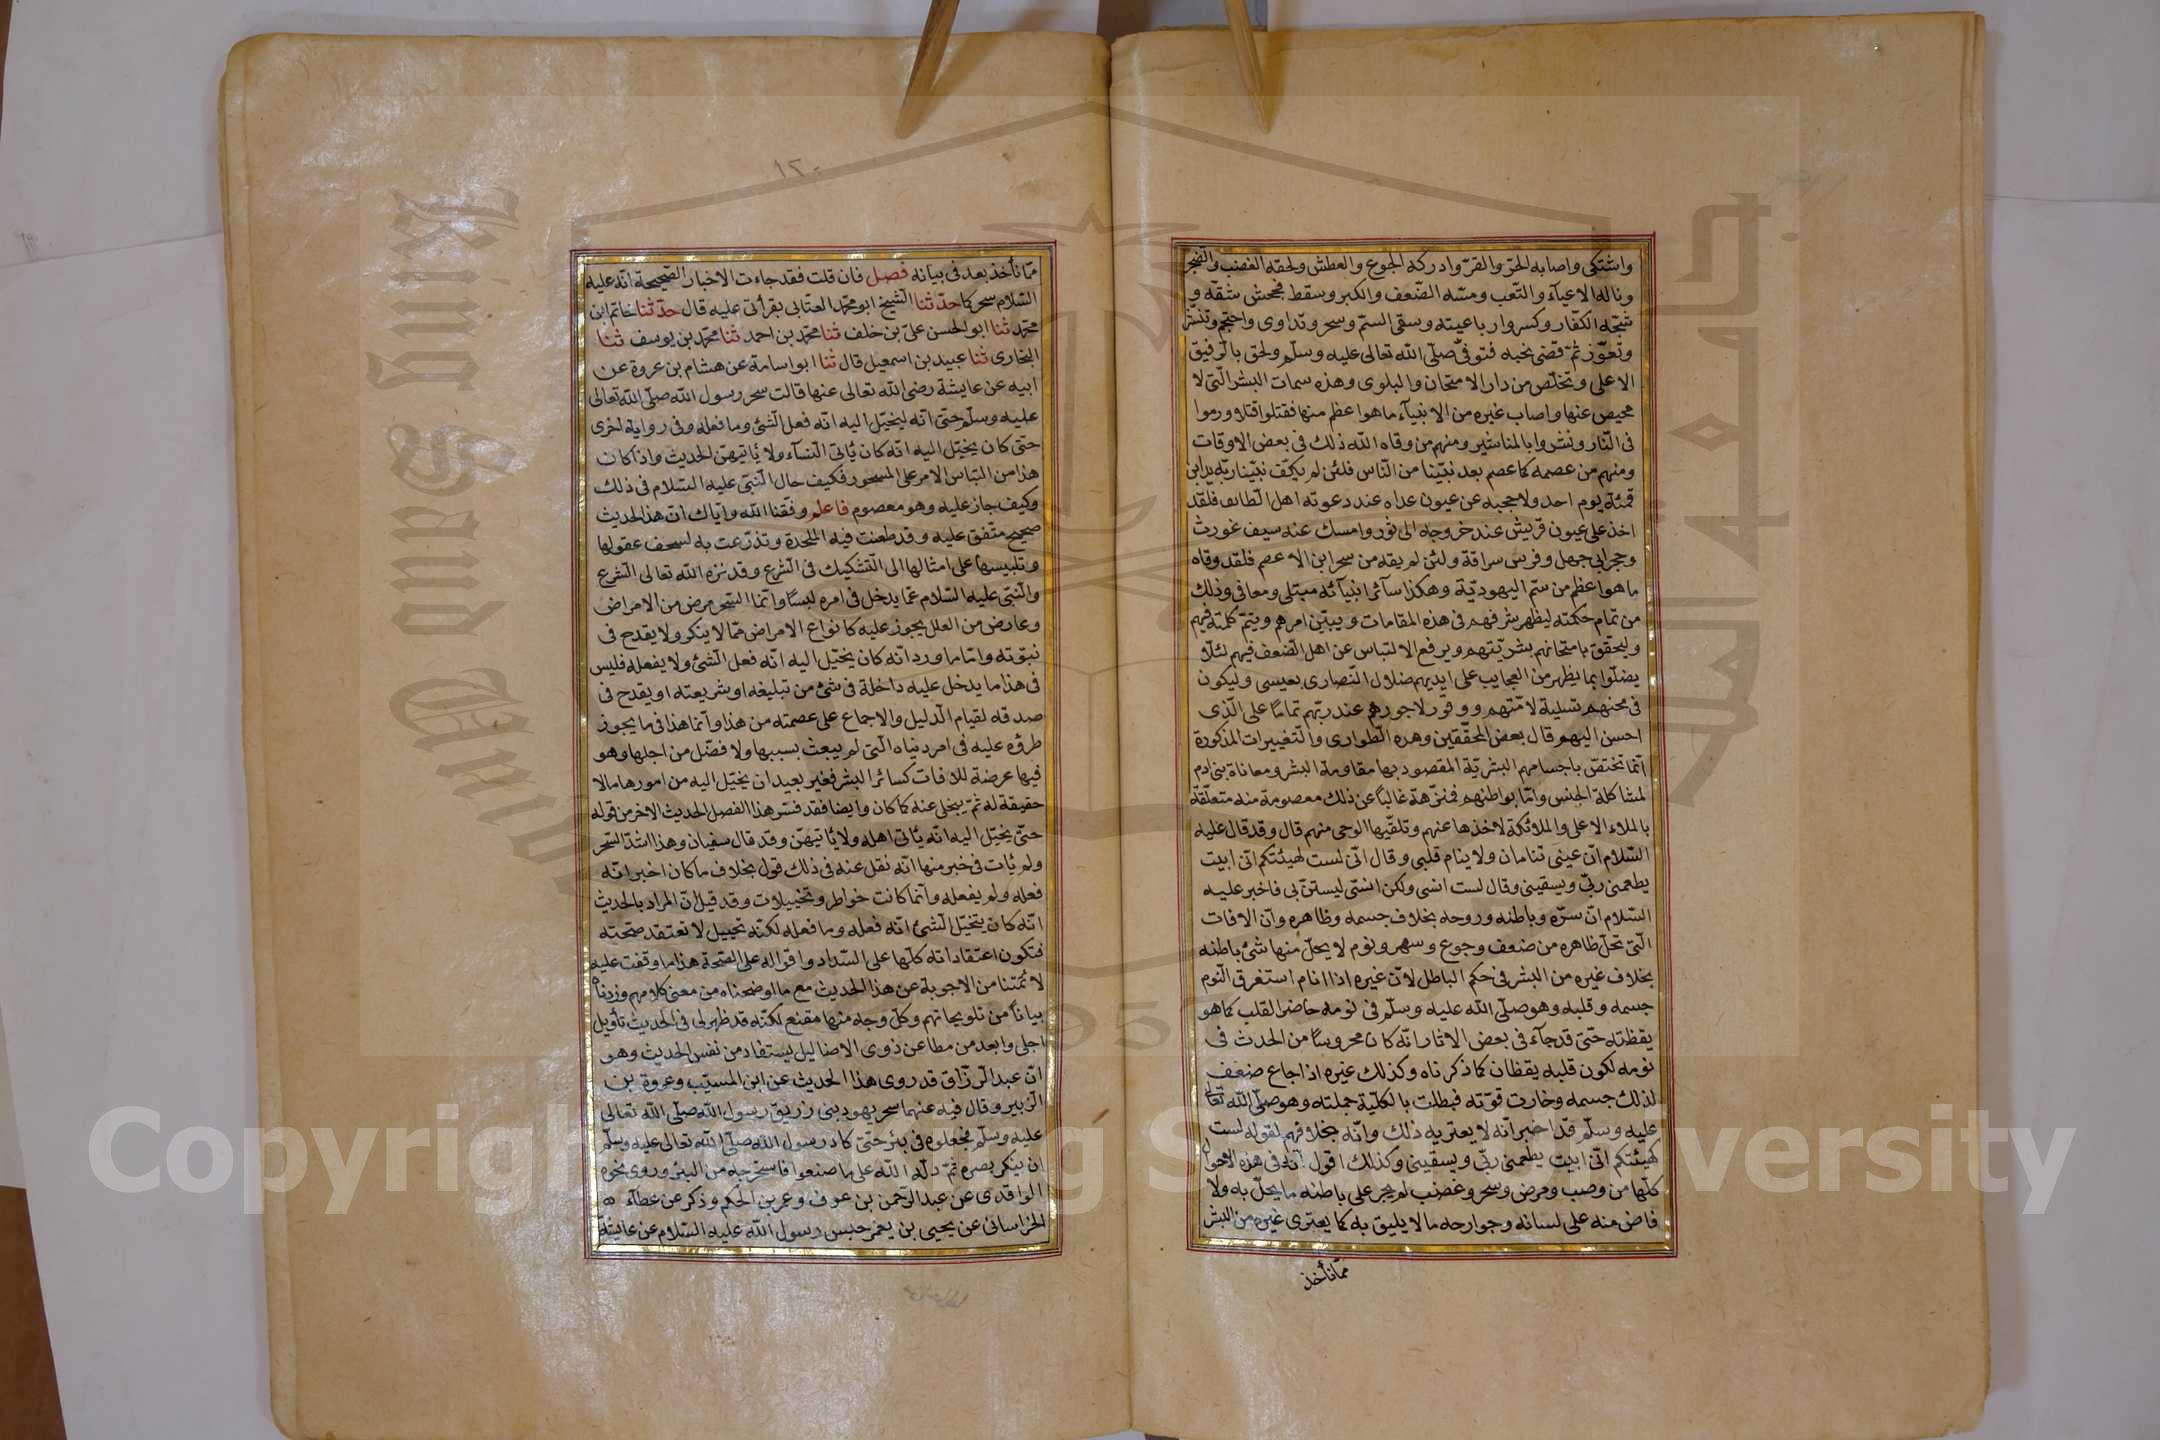 واشتكى واصابه الحرّ والقرّ وادركه الجوع والعطش ولحقه الغضب والضجر
وناله الاعيآء والتّعب ومسّه الضّعف والكبر وسقط فجحش شقّه و
شجّه الكفّار وكسروا رباعيته وسقى السّم وسحر وتداوى واحتجم وتنشّر
وتعوّذ ثمّ قضى نحبه فتوفّى صلّى الله تعالى عليه وسلّم ولحق بالرّفيق
الاعلى وتخلّص من دار الامتحان والبلوى وهذه سمات البشر الّتى لا
محيص عنها واصاب غيره من الانبيآء ما هو اعظم منها فقتلوا قتلا ورموا
فى النّار ونشروا بالمناشير ومنهم من وقاه الله ذلك فى بعض الاوقات
ومنهم من عصمه كما عصم بعد نبيّنا من النّاس فلئن لم يكف نبيّنا ربّه يد ابن
قمئة يوم احد ولا حجبه عن عيون عداه عند دعوته اهل الطّائف فلقد
اخذ على عيون قريش عند خروجه الى ثور وامسك عنه سيف غورث
وحجر ابى جهل وفرس سراقة ولئن لم يقه من سحر ابن الاعصم فلقد وقاه
ما هو اعظم من سمّ اليهوديّة وهكذا سآئر انبيآئه مبتلى ومعافى وذلك
من تمام حكمته ليظهر شرفهم فى هذه المقامات ويبيّن امرهم ويتمّ كلمته فيهم
وليحقّق بامتحانهم بشريّتهم ويرفع الالتباس عن اهل الضّعف فيهم لئلّا
يضلّوا بما يظهر من العجايب على ايديهم ضلال النّصارى بعيسى وليكون
فى محنهم تسلية لامّتهم ووفور لاجورهم عند ربّهم تماما على الّذى
احسن اليهم قال بعض المحقّقين وهذه الطّوارى والتّغييرات المذكورة
انّما تختصّ باجسامهم البشريّة المقصود بها مقاومة البشر ومعاناة بنى ادم
لمشاكلة الجنس وامّا بواطنهم فمنزّهة غالبا عن ذلك معصومة منه متعلّقة
بالملاء الاعلى والملائكة لاخذها عنهم وتلقّيها الوحى منهم قال وقد قال عليه
السّلام انّ عينى تنامان ولا ينام قلبى وقال انّى لست لهيئتكم انّى ابيت
يطعمنى ربّى ويسقينى وقال لست انسى ولكن انسّى ليستنّ بى فاخبر عليه
السّلام انّ سرّه وباطنه وروحه بخلاف جسمه وظاهره وانّ الافات
الّتى تحلّ ظاهره من ضعف وجوع وسهر ونوم لا يحلّ منها شئ باطنه
بخلاف غيره من البشر فى حكم الباطل لانّ غيره اذا نام استغرق النّوم
جسمه وقلبه وهو صلّى الله عليه وسلّم فى نومه حاضر القلب كما هو
يقظته حتّى قد جآء فى بعض الاثار انّه كان محروسا من الحدث فى
نومه لكون قلبه يقظان كما ذكرناه وكذلك غيره اذا جاع ضعف
لذلك جسمه وخارت قوّته فبطلت بالكلّية جملته وهو صلّى الله تعالى
عليه وسلّم قد اخبر انّه لا يعتريه ذلك وانّه بخلافهم لقوله لست
كهيئتكم انّى ابيت يطعمنى ربّى ويسقينى وكذلك اقول انّه فى هذه الاحوال
كلّها من وصب ومرض وسحر وغضب لم يجر على باطنه ما يحلّ به ولا
فاض منه على لسانه وجوارحه ما لا يليق به كما يعترى غيره من البشر
ممّا نأخذ
١٢٠
ممّا نأخذ بعد فى بيانه فصل فان قلت فقد جاءت الاخبار الصّحيحة انّه عليه
السّلام سحر كما حدّثنا الشّيخ ابو محمّد العتّابى بقرأتى عليه قال حدّثنا خاتم ابن
محمّد ثنا ابو الحسن علىّ بن خلف ثنا محمّد بن احمد ثنا محمّد بن يوسف ثنا
البخارى ثنا عبيد بن اسمعيل قال ثنا ابو اسامة عن هشام بن عروة عن
ابيه عن عايشة رضى الله تعالى عنها قالت سحر رسول الله صلّى الله تعالى
عليه وسلّم حتّى انّه ليخيّل اليه انّه فعل الشّئ وما فعله وفى رواية اخرى
حتّى كان يخيّل اليه انّه كان يأتى النّسآء ولا يأتيهنّ الحديث واذا كان
هذا من التباس الامر على المسحور فكيف حال النّبى عليه السّلام فى ذلك
وكيف جاز عليه وهو معصوم فاعلم وفّقنا الله وايّاك انّ هذا الحديث
صحيح متّفق عليه وقد طعنت فيه الملحدة وتذرّعت به لسخف عقولها
وتلبيسها على امثالها الى التّشكيك فى الشّرع وقد نزّه الله تعالى الشّرع
والنّبى عليه السّلام عمّا يدخل فى امره لبسا وانّما السّحر مرض من الامراض
وعارض من العلل يجوز عليه كانواع الامراض ممّا لا ينكر ولا يقدح فى
نبوّته وامّا ما ورد انّه كان يخيّل اليه انّه فعل الشّئ ولا يفعله فليس
فى هذا ما يدخل عليه داخلة فى شئ من تبليغه او شريعته او يقدح فى
صدقه لقيام الدّليل والاجماع على عصمته من هذا وانّما هذا فى ما يجوز
طروّه عليه فى امر دنياه الّتى لم يبعث بسببها ولا فضّل من اجلها وهو
فيها عرضة للافات كسائر البشر فغير بعيد ان يخيّل اليه من امورها ما لا
حقيقة له ثمّ يجلى عنه كما كان وايضا فقد فسّر هذا الفصل الحديث الاخر من قوله
حتّى يخيّل اليه انّه يأتى اهله ولا يأتيهنّ وقد قال سفيان وهذا اشدّ السّحر
ولم يأت فى خبر منها انّه نقل عنه فى ذلك قول بخلاف ما كان اخبر انّه
فعله ولم يفعله وانّما كانت خواطر وتخييلات وقد قيل انّ المراد بالحديث
انّه كان يتخيّل الشّئ انّه فعله وما فعله لكنّه تخييل لا نعتقد صحّته
فتكون اعتقاداته كلّها على السّداد واقواله على الصّحة هذا ما وقفت عليه
لائمّتنا من الاجوبة عن هذا الحديث مع ما اوضحناه من معنى كلامهم وزدناه
بيانا من تلويحاتهم وكلّ وجه منها مقنع لكنّه قد ظهر لى فى الحديث تأويل
اجلى وابعد من مطاعن ذوى الاضاليل يستفاد من نفس الحديث وهو
انّ عبد الرّزّاق قد روى هذا الحديث عن ابن المسيّب وعروة بن
الزّبير وقال فيه عنهما سحر يهود بنى زريق رسول الله صلّى الله تعالى
عليه وسلّم فجعلوه فى بئر حتّى كاد رسول الله صلّى الله تعالى عليه وسلّم
ان ينكر بصره ثمّ دلّه الله على ما صنعوا فاستخرجه من البئر وروى نحوه
الواقدى عن عبد الرّحمن بن عوف وعمر بن الحكم وذكر عن عطآء
الخراسانى عن يحيى بن يعمر حبس رسول الله عليه السّلام عن عايشة
King Saud University
1957
Copyright © King Saud University